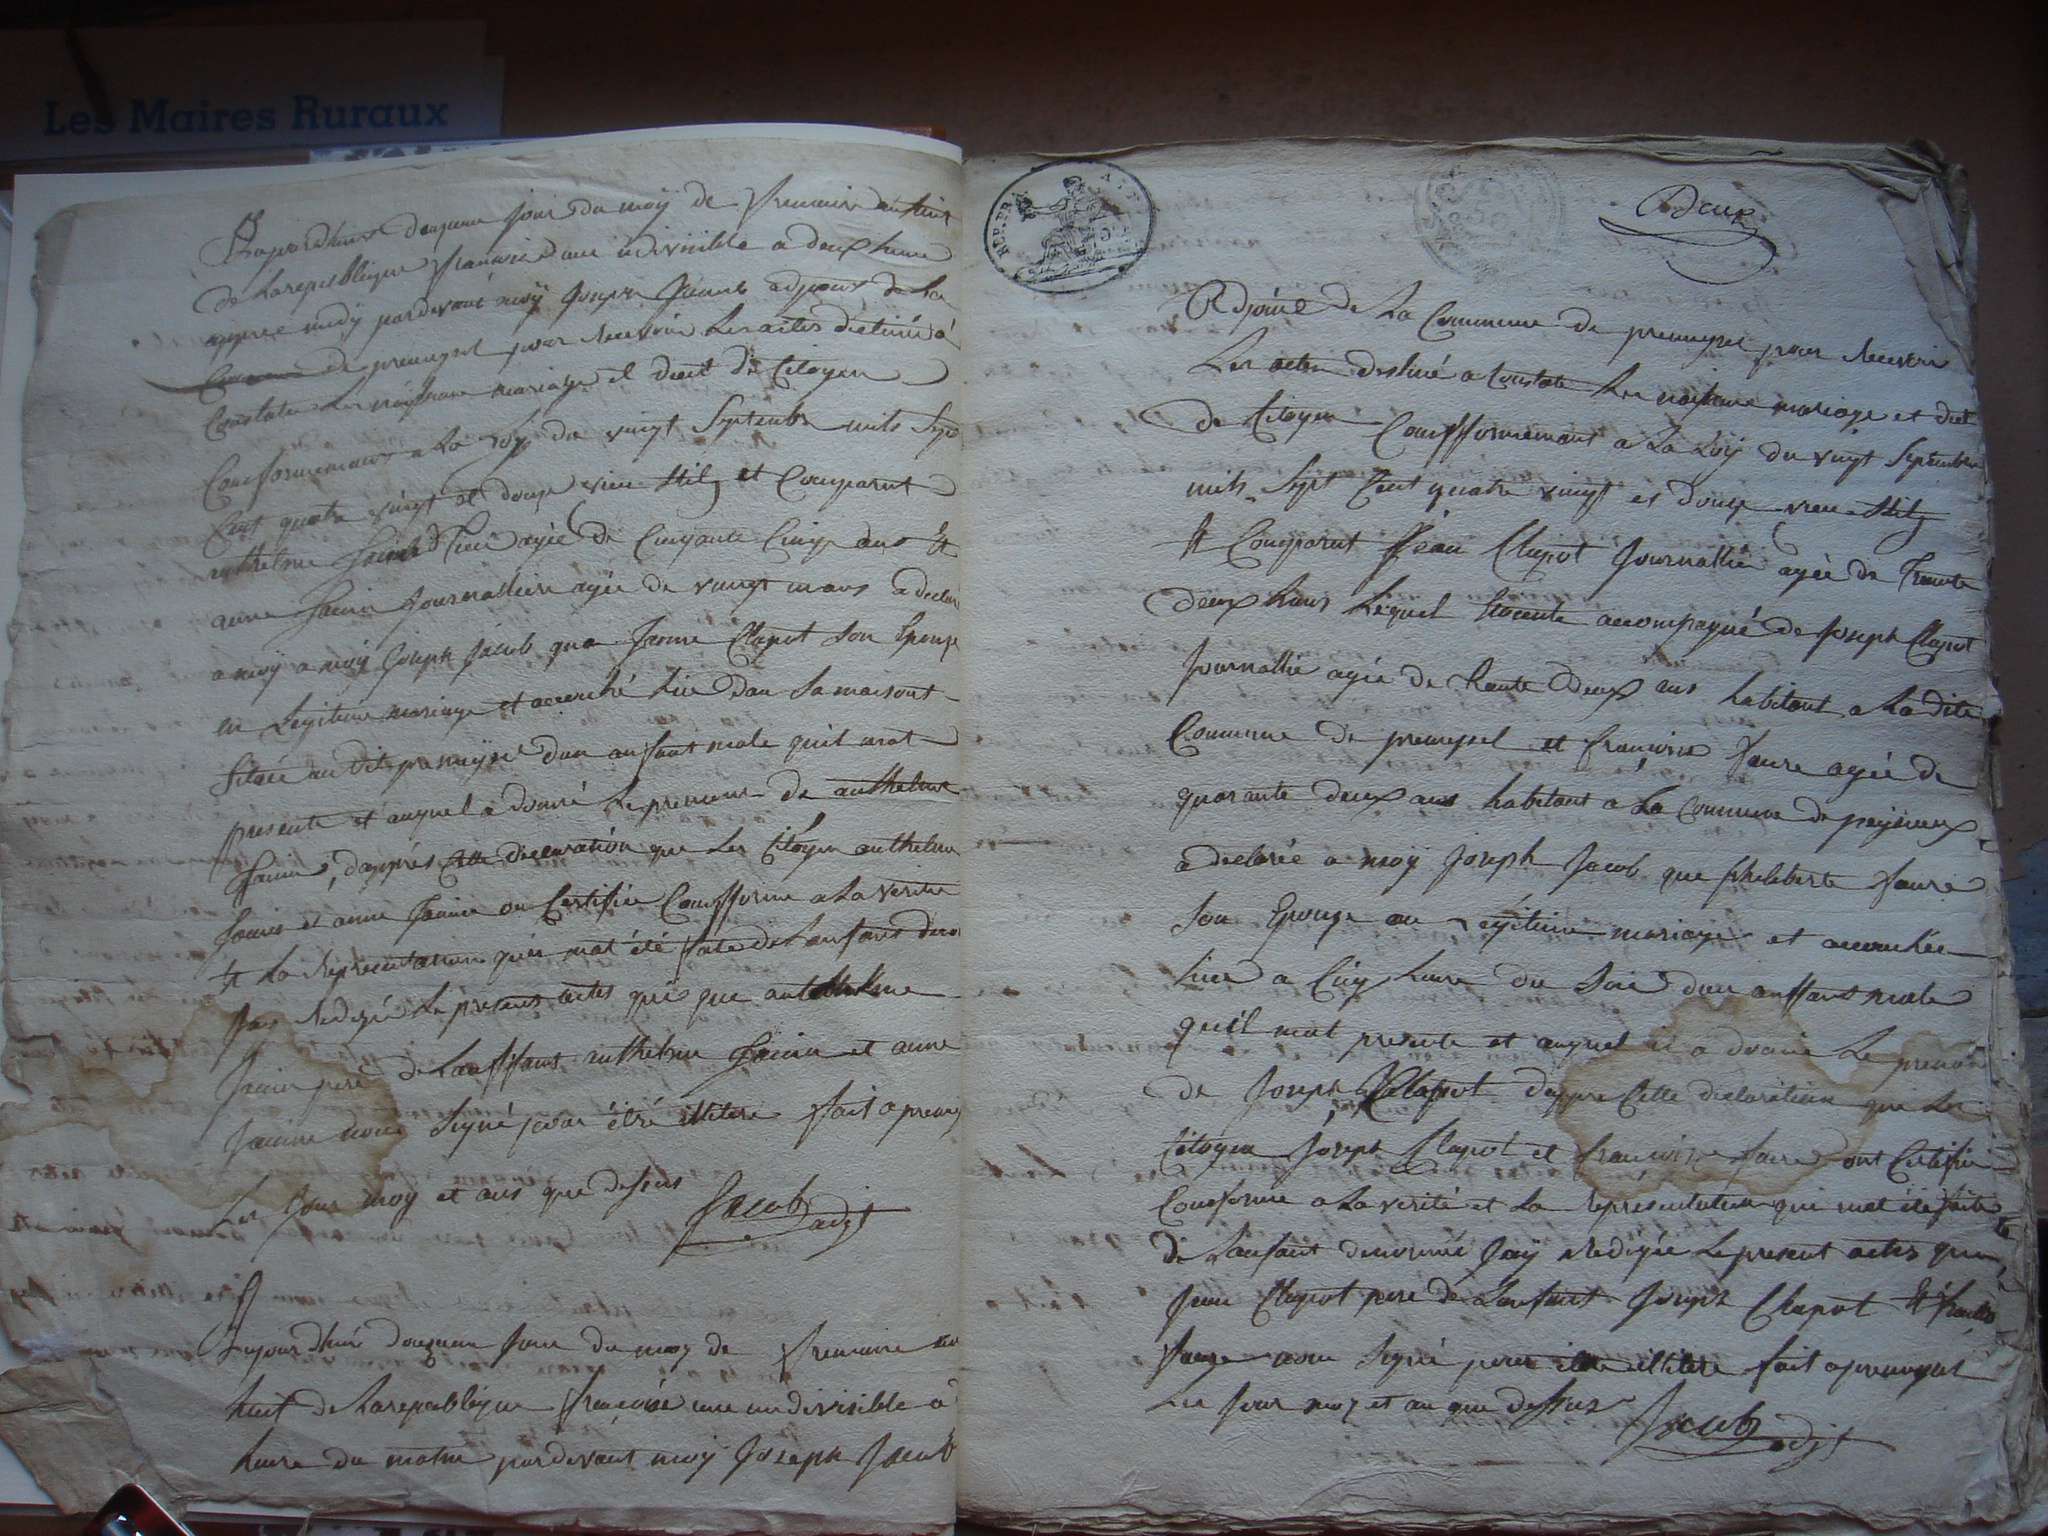 Les Maires Ruraux
aujourdhui jour du moy de frimaire an huit
de La republique francoise une indivisible a deux heure
appres midy pardevant moy Joseph Jacob adjoint de La
Commune de premeysel pour Recevoir Les actes destiné a
Constater Les naissance mariage et deces de Citoyen
Conformement a La Loy du vingt Septembre mils Sept
Cent quatre vingt et douze vieu stile et Comparut
anthelme agée de Cinquante Cinq ans et
anne journalliere agée de vingt ans a declaré
a moy a moy Joseph Jacob que Janne Clapot Son Epouze
en Legitime mariage et accouché hier dan Sa maisont
Située au dit premeysel dun anfant male quil
presente et auquel a donné Le prenom de anthelme
dappres Cette declaration que Les Citoyen anthelme
et anne on Certifiée Confforme a La verité
et La Representation qui mat été faite de Lanfant
Jay Redigé Le present actes que anthelme
pere de Lanffant anthelme et anne
nont Signé pour étre illitere fait a premey
Les Jour moy et ans que dessus Jacob adjt
aujourdhui douzieme Jour du moy de frimaire an
huit de La republique francoise une indivisible a
heure du matin pardevant moy Joseph Jacob
REP. FRA.
Deux
Adjoint de La Commune de premeysel pour Recevoir
Les actes destiné a Constate Les naissance mariage et
de Citoyen Confformemant a La Loÿ du vingt Septembre
mils Sept Cent quatre vingt et douze vieu stile
et Comparut Jean Clapot Journallié agée de Trente
deux hans Lequel accompagné de Joseph Clapot
Journallié agée de trante deux ans habitant a La dite
Commune de premeysel et francoise faure agée de
quarante deux ans habitant a La Commune de peysieux
a declarée a moÿ Joseph Jacob que philiberte faure
Son Epouze an Legitime mariage et accouchée
hier a Cinq heure du Soir dun anffant male
qu'il mat presente et auquel il a donné Le prenom
de Joseph Clapot dappre Cette declaration que Les
Citoyen Joseph Clapot et francoise faure ont Certifié
Conforme a La verité et La Representation qui mat été faite
de Lanfant denommé Jaÿ Redigée Le present actes que
Jean Clapot pere de Lanfant Joseph Clapot et
faure nont Signé pour étre illitere fait a premeysel
Les Jour moy et an que dessus Jacob adjt